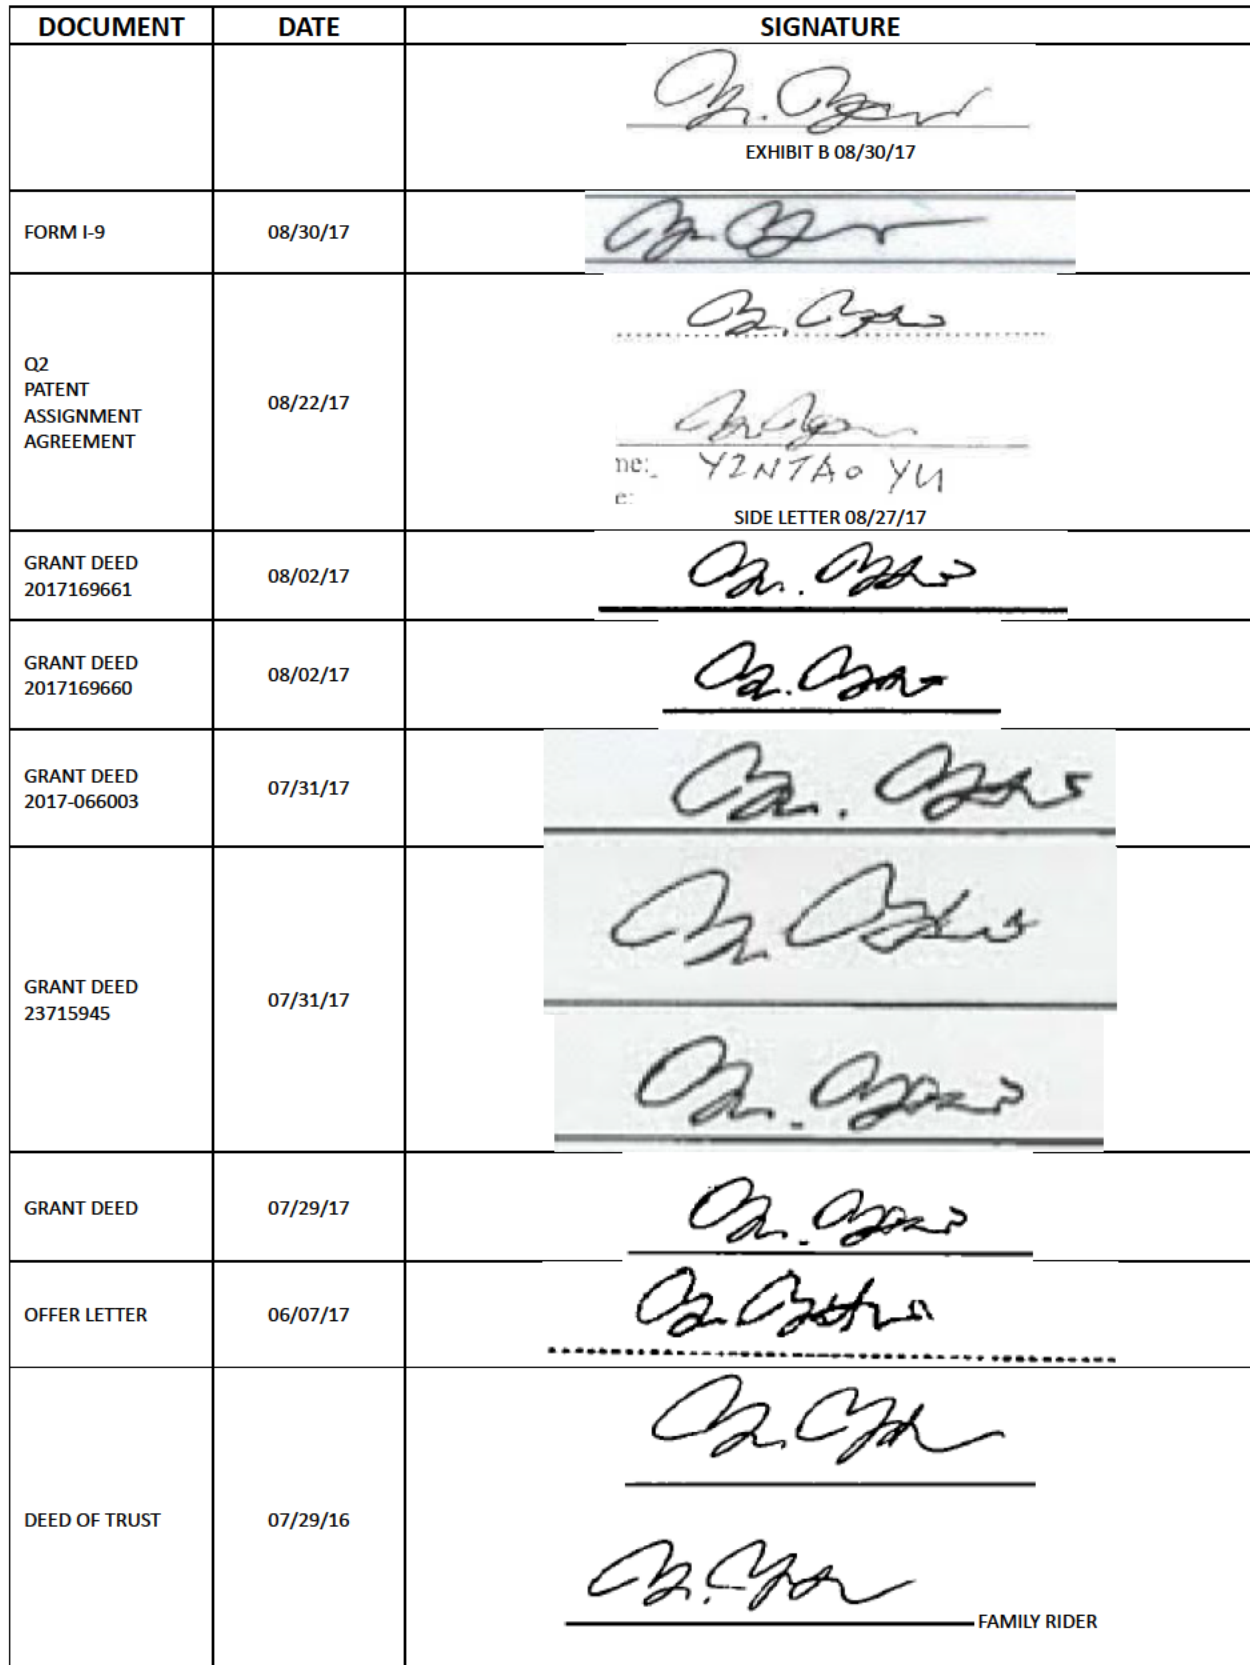 DOCUMENT DATE SIGNATURE
EXHIBIT B 08/30/17
FORM I-9 08/30/17
Q2
PATENT
ASSIGNMENT
AGREEMENT
08/22/17
me:
YINTAO YU
e:
SIDE LETTER 08/27/17
GRANT DEED
2017169661
08/02/17
GRANT DEED
2017169660
08/02/17
GRANT DEED
2017-066003
07/31/17
GRANT DEED
23715945
07/31/17
GRANT DEED 07/29/17
OFFER LETTER 06/07/17
DEED OF TRUST 07/29/16
FAMILY RIDER